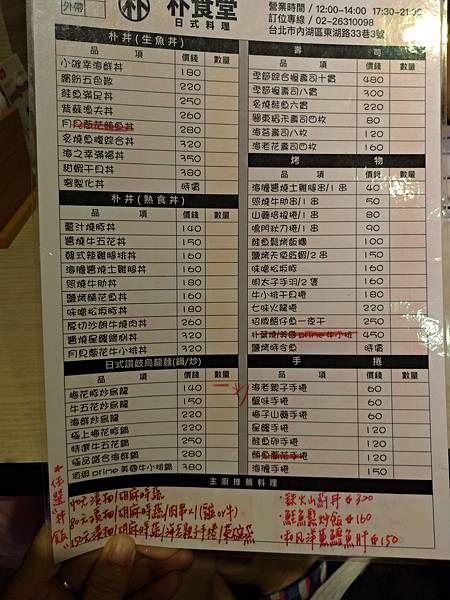 朴 朴食堂
日式料理
營業時間 / 12:00-14:00 17:30-21:00
訂位專線 / 02-26310098
台北市內湖區東湖路33巷3號
朴丼(生魚丼)
品 項 價錢 數量
小確幸海鮮丼 180
繽紛五色散 220
鮭魚滿足丼 250
紫蘇漁夫丼 260
月見蔥花鮪魚丼 280
炙燒魚腹綜合丼 320
海之幸滿福丼 350
甜蝦干貝丼 380
客製化丼 時價
朴丼(熟食丼)
品 項 價錢 數量
薑汁燒豚丼 140
醬燒牛五花丼 150
韓式辣雞腿排丼 160
海膽醬燒土雞腿丼 160
照燒牛肋丼 180
鹽烤鯖花魚丼 160
味噌松坂豚丼 180
厚切沙朗牛燒肉丼 260
醬燒星鰻鰭側丼 320
月見蔥花牛小排丼 320
日式讚岐烏龍麵(鍋/炒)
品 項 價錢 數量
梅花豚炒烏龍 140
牛五花炒烏龍 150
海鮮炒烏龍 220
極上梅花鍋 220
特選牛五花鍋 250
極品盛合海鮮鍋 280
酒蒸prime美國牛小排鍋 380
壽 司
品 項 價錢 數量
季節綜合握壽司十貫 480
季節握壽司八貫 300
炙燒鮭魚六貫 220
關東稻禾壽司四枚 80
海苔壽司八枚 120
海老花壽司四枚 160
烤 物
品 項 價錢 數量
海膽醬燒土雞腿串/1串 40
照燒牛肋串/1串 50
山藥培根捲/1串 80
鳴門秋刀捲/1串 90
鮭魚鬆烤飯糰 100
鹽烤天使紅蝦/2串 150
味噌松坂豚 160
明太子手羽/2隻 160
牛小排干貝捲 180
七味火龍捲 220
招牌鯖仔魚一夜干 250
朴醬燒/美國prime牛小排 450
鹽烤時令魚 時價
手 捲
品 項 價錢 數量
海老親子手捲 60
蟹味手捲 60
梅子山藥手捲 60
星鰻手捲 120
鮭魚卵手捲 120
鮪魚蔥花手捲 120
海膽手捲 150
主廚推薦料理
任選"丼飯"
40元湯物/胡麻時蔬
80元湯物/胡麻時蔬/肉串x1(雞or牛)
150元湯物/胡麻時蔬/海老親子手捲/茶碗蒸
鮭魚鬆炒飯 $160
$300
$150